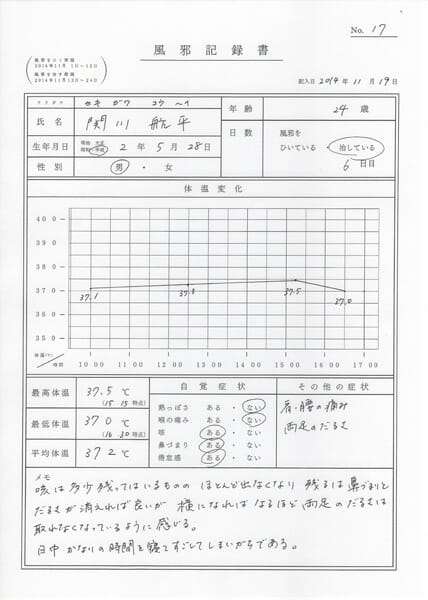 No. 17
風邪記録書
風邪をひく期間
2014年11月 1日~12日
風邪を治す期間
2014年11月13日~24日
記入日 2014年 11月 19日
フリガナ セキ ガワ コウ ヘイ
氏名 関川 航平
年齢 24歳
生年月日 明治 大正 昭和 平成 2年 5月 28日
性別 男 ・ 女
日数 風邪を
ひいている ・ 治している
6日目
体温変化
400
390
380
370
360
350
37.1
37.3
37.5
37.0
体温(℃)/時間
10 00 11 00 12 00 13 00 14 00 15 00 16 00 17 00
最高体温 37.5℃
(15 15 時点)
最低体温 37.0℃
(16 30 時点)
平均体温 37.2℃
自覚症状
熱っぽさ ある ・ ない
喉の痛み ある ・ ない
咳 ある ・ ない
鼻づまり ある ・ ない
倦怠感 ある ・ ない
その他の症状
肩・腰の痛み
両足のだるさ
メモ
咳は多少残ってはいるものの ほとんど出なくなり 残るは鼻づまりと
だるさが消えれば良いが 横になればなるほど両足のだるさは
取れなくなっているように感じる。
日中 かなりの時間を寝てすごしてしまいがちである。